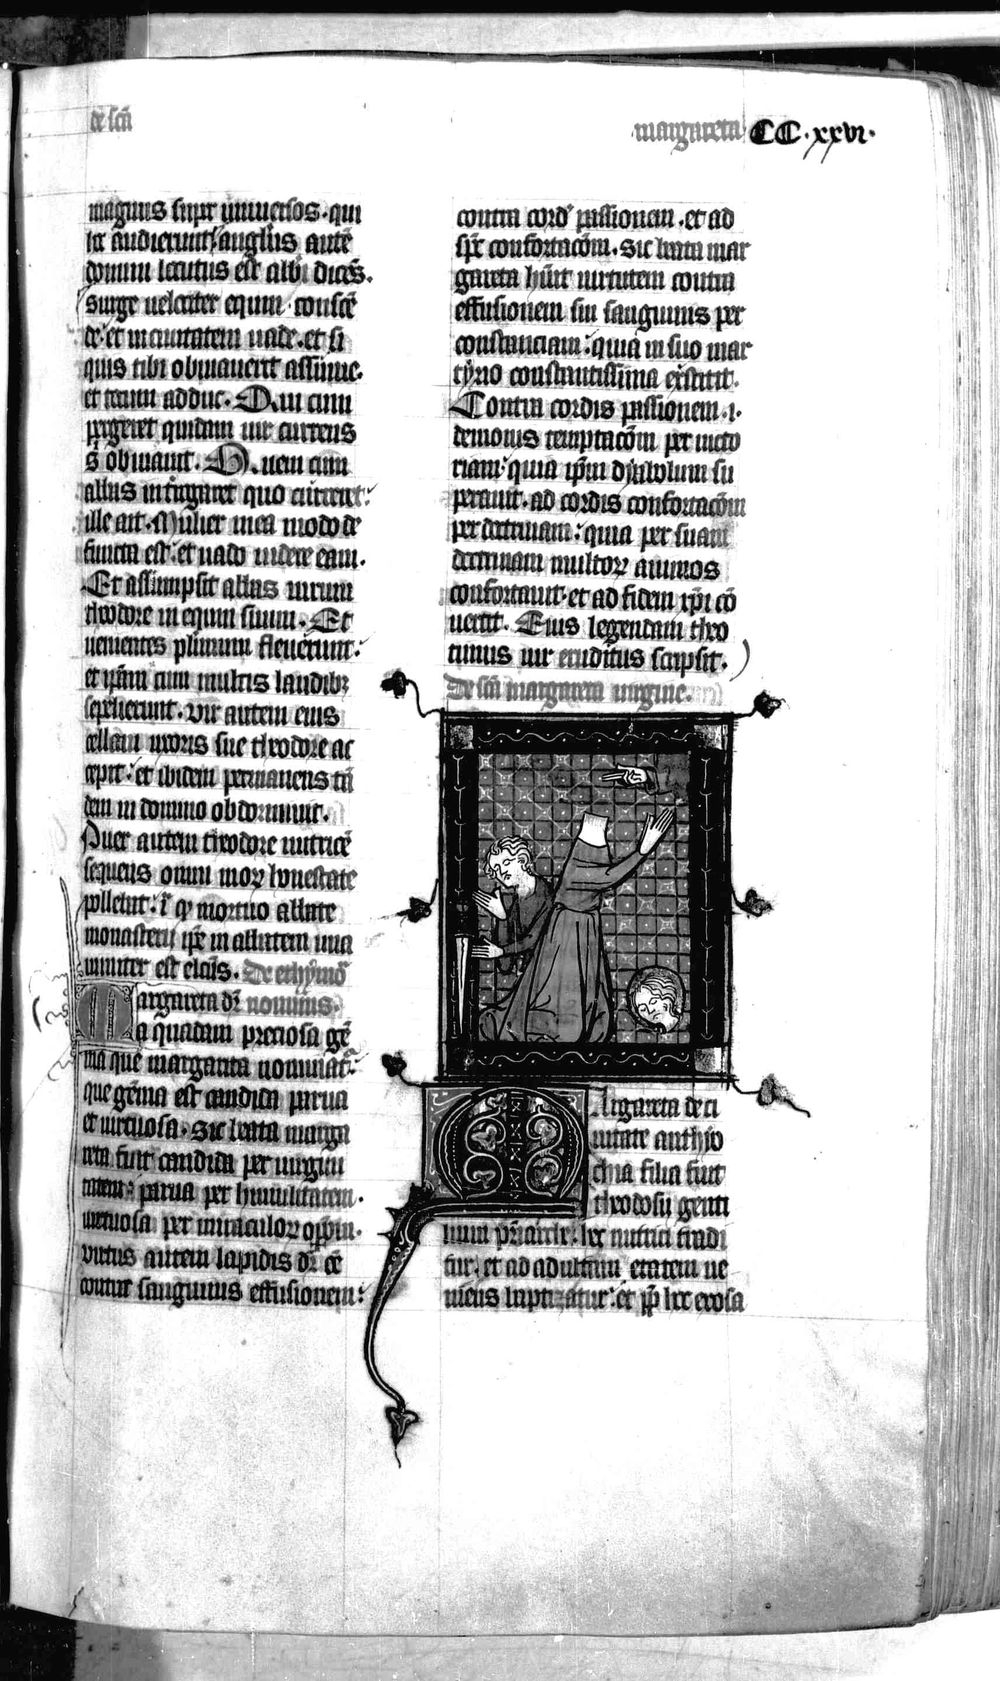 de scā
margareta CC·xxvi·
magnus super universos. qui
hec audierunt. anglus autē
domini locutus est abbī dicēs.
surge velociter equm conscē
de. et in civitatem vade. et si
quis tibi obviaverit assume.
et tecum adduc. Qui cum
pergeret quidam vir currens
ei obviavit. Quem cum
abbas interrogaret quo curreret:
ille ait. Mulier mea modo de
functa est. et vado videre eam.
Et assumpsit abbas virum
theodore in equm suum. Et
venientes plurimum fleverunt.
et ipsam cum multis laudibꝫ
sepelierunt. vir autem eius
cellam uxoris sue theodore ac
cepit. et ibidem permanens tā
dem in domino obdormivit.
Puer autem theodore nutricē
sequens omni moꝝ honestate
pollebat. ī qꝫ mortuo abbate
monasterii ipse in abbatem una
nimiter est elcūs. De ethymo
Margareta dr̄ nominis.
a quadam preciosa gē
ma que margarita nominatur.
que gēma est candida parva
et virtuosa. Sic beata marga
reta fuit candida per virgini
tatem. parva per humilitatem.
virtuosa per miraculoꝝ opp̄m.
virtus autem lapidis dr̄ eē
contra sanguinis effusionem.
contra cord' passionem. et ad
spc confortacōm. Sic beata mar
gareta hūit virtutem contra
effusionem sui sanguinis per
constanciam. quia in suo mar
tyrio constantissima extitit.
Contra cordis passionem. i.
demonis temptacōm per victo
riam. quia ip̄m dyabolum su
peravit. ad cordis confortacōm
per doctrinam. quia per suam
doctrinam multoꝝ animos
confortavit. et ad fidem xp̄i cō
vertit. Eius legendam theo
timus vir eruditus scripsit.
De scā margareta virgine.
Margareta de ci
vitate anthyo
chia filia fuit
theodosii genti
lium p̄riarche. hec nutrici tradi
tur. et ad adultam etatem ve
niens baptizatur. et pp̄ hec exosa